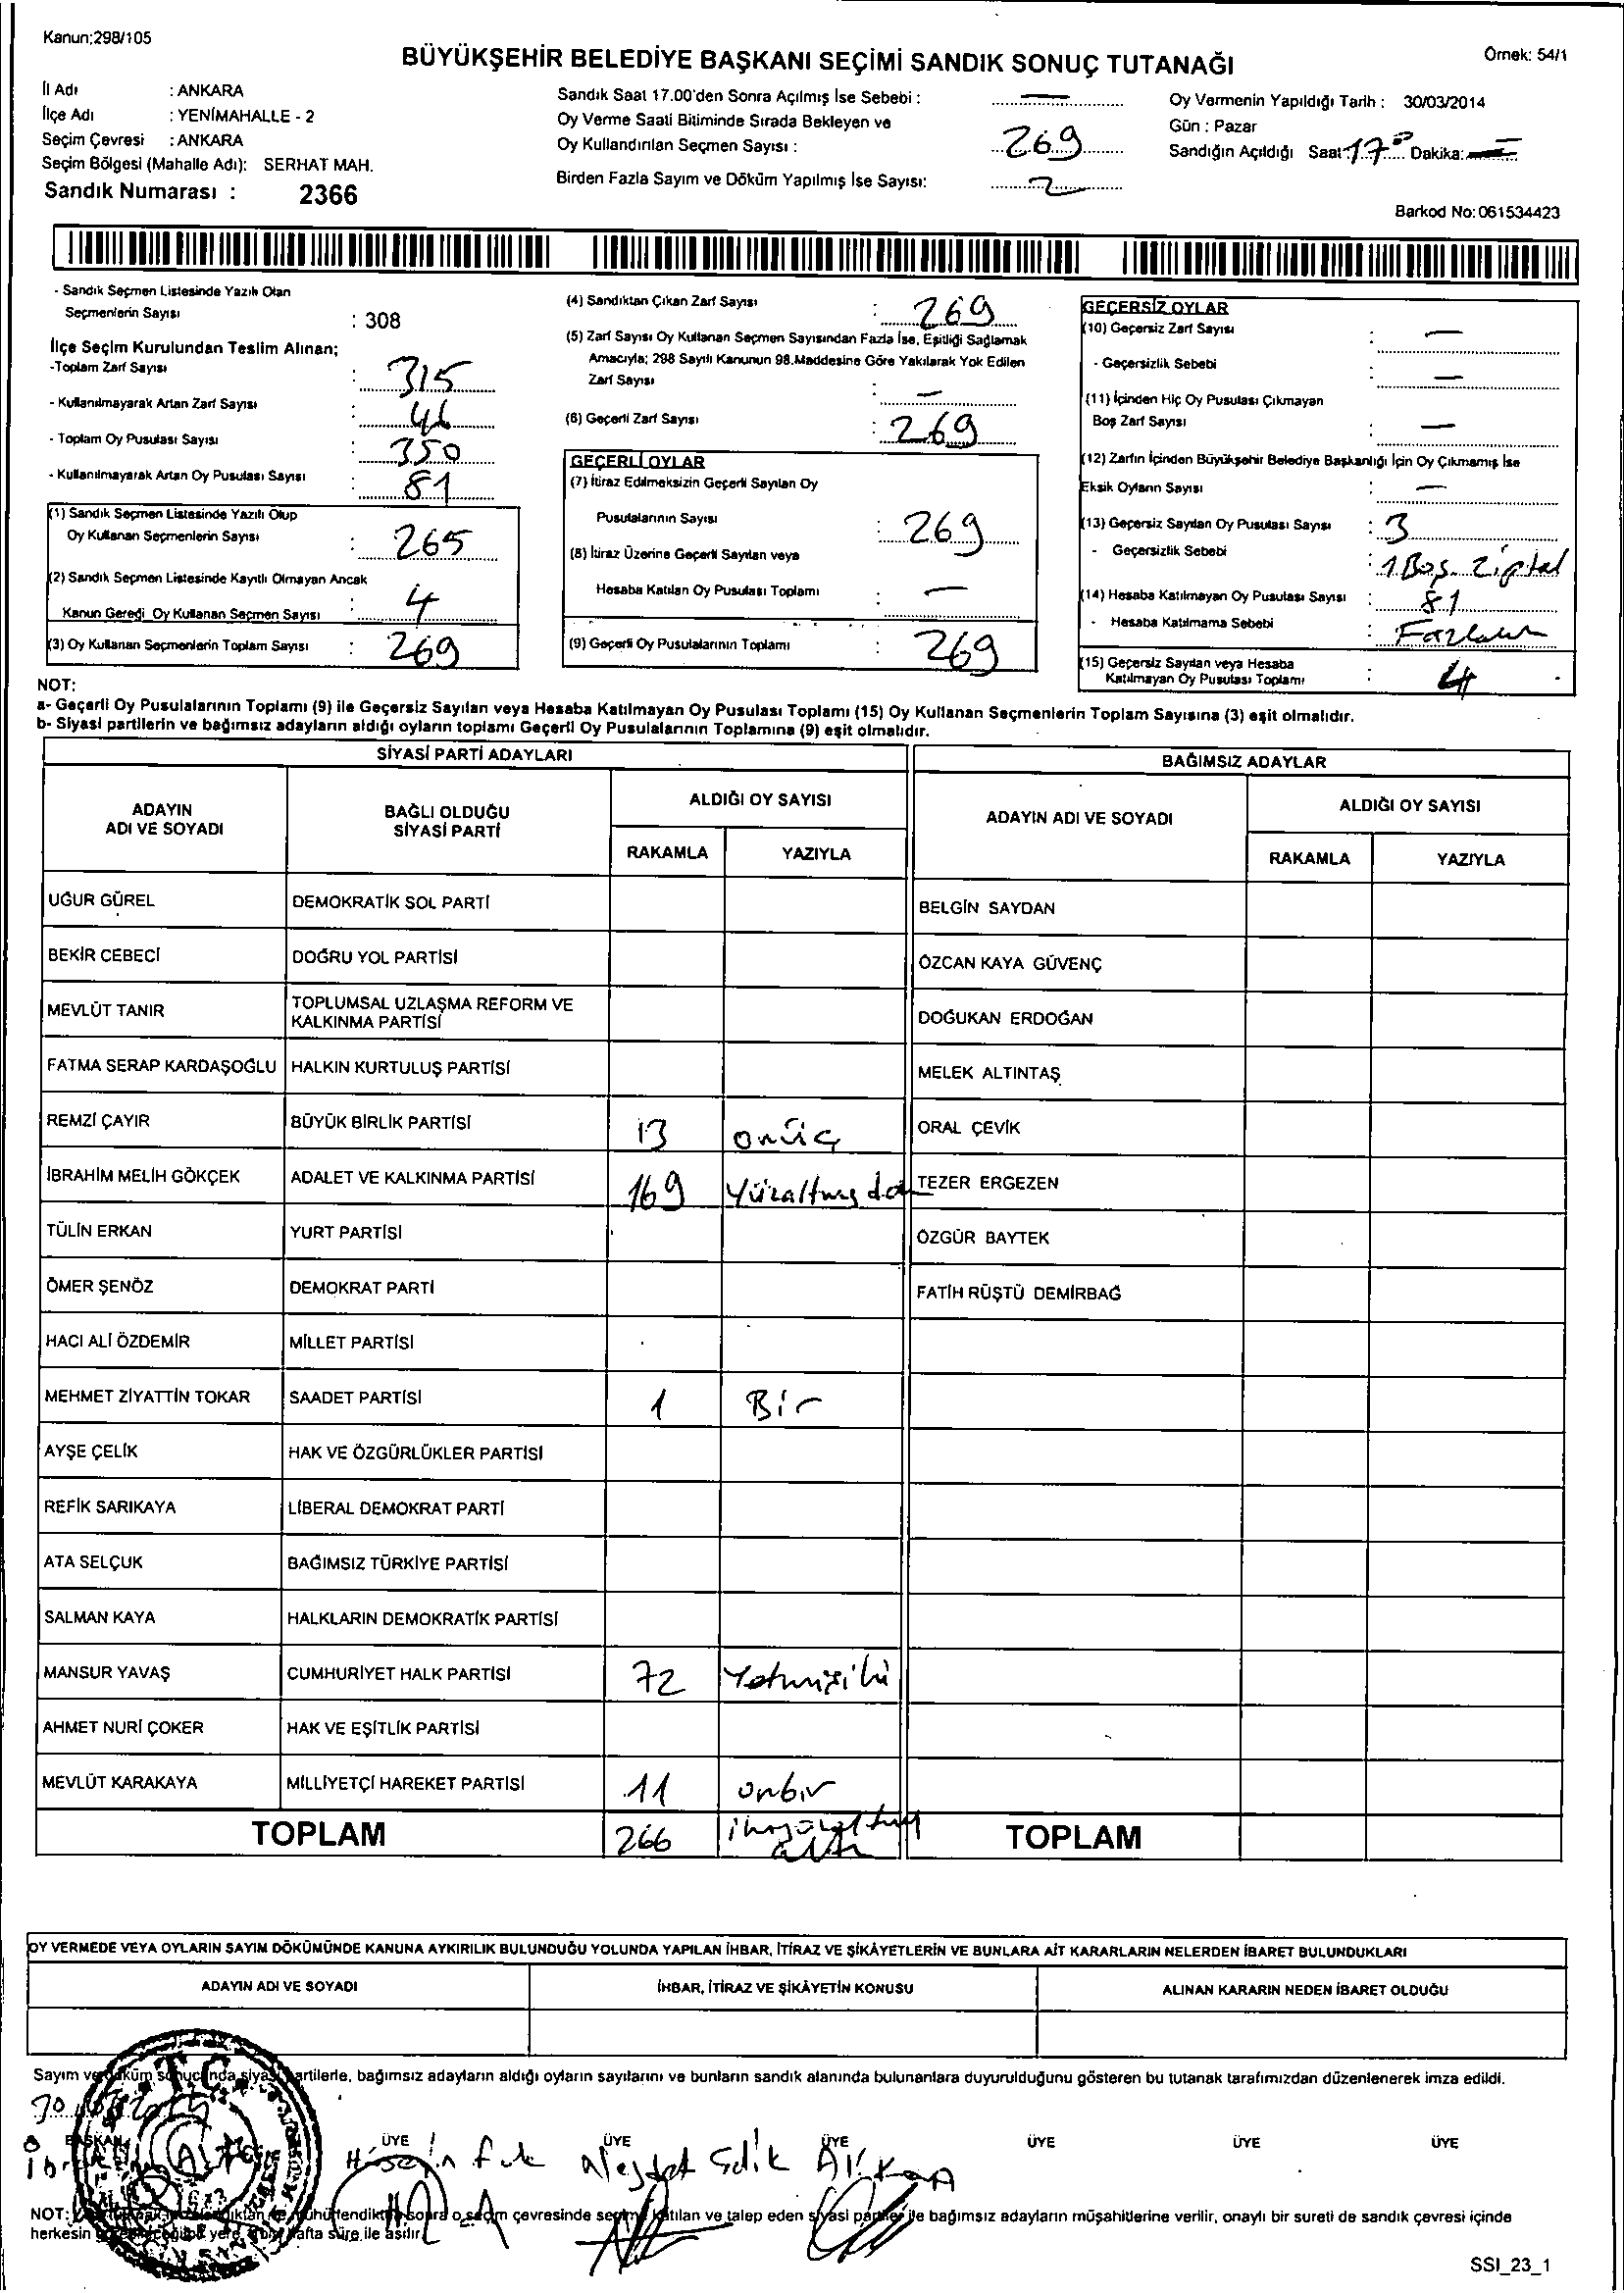 Kanun:298/105
BÜYÜKŞEHİR BELEDİYE BAŞKANI SEÇİMİ SANDIK SONUÇ TUTANAĞI
Örnek: 54/1
İl Adı : ANKARA
İlçe Adı : YENİMAHALLE - 2
Seçim Çevresi : ANKARA
Seçim Bölgesi (Mahalle Adı): SERHAT MAH.
Sandık Numarası : 2366
Sandık Saat 17.00'den Sonra Açılmış İse Sebebi : —
Oy Verme Saati Bitiminde Sırada Bekleyen ve
Oy Kullandırılan Seçmen Sayısı : 269
Birden Fazla Sayım ve Döküm Yapılmış İse Sayısı: 2
Oy Vermenin Yapıldığı Tarih : 30/03/2014
Gün : Pazar
Sandığın Açıldığı Saat: 17 Dakika:
Barkod No: 061534423
- Sandık Seçmen Listesinde Yazılı Olan
Seçmenlerin Sayısı : 308
İlçe Seçim Kurulundan Teslim Alınan;
-Toplam Zarf Sayısı : 315
- Kullanılmayarak Artan Zarf Sayısı : 46
- Toplam Oy Pusulası Sayısı : 350
- Kullanılmayarak Artan Oy Pusulası Sayısı : 81
(1) Sandık Seçmen Listesinde Yazılı Olup
Oy Kullanan Seçmenlerin Sayısı : 265
(2) Sandık Seçmen Listesinde Kayıtlı Olmayan Ancak
Kanun Gereği Oy Kullanan Seçmen Sayısı : 4
(3) Oy Kullanan Seçmenlerin Toplam Sayısı : 269
(4) Sandıktan Çıkan Zarf Sayısı : 269
(5) Zarf Sayısı Oy Kullanan Seçmen Sayısından Fazla İse, Eşitliği Sağlamak
Amacıyla; 298 Sayılı Kanunun 98.Maddesine Göre Yakılarak Yok Edilen
Zarf Sayısı : —
(6) Geçerli Zarf Sayısı : 269
GEÇERLİ OYLAR
(7) İtiraz Edilmeksizin Geçerli Sayılan Oy
Pusulalarının Sayısı : 269
(8) İtiraz Üzerine Geçerli Sayılan veya
Hesaba Katılan Oy Pusulası Toplamı : —
(9) Geçerli Oy Pusulalarının Toplamı : 269
GEÇERSİZ OYLAR
(10) Geçersiz Zarf Sayısı : —
- Geçersizlik Sebebi : —
(11) İçinden Hiç Oy Pusulası Çıkmayan
Boş Zarf Sayısı : —
(12) Zarfın İçinden Büyükşehir Belediye Başkanlığı İçin Oy Çıkmamış İse
Eksik Oyların Sayısı : —
(13) Geçersiz Sayılan Oy Pusulası Sayısı : 3
- Geçersizlik Sebebi : 1 Boş 2 iptal
(14) Hesaba Katılmayan Oy Pusulası Sayısı : 81
- Hesaba Katılmama Sebebi :
(15) Geçersiz Sayılan veya Hesaba
Katılmayan Oy Pusulası Toplamı : 4
NOT:
a- Geçerli Oy Pusulalarının Toplamı (9) ile Geçersiz Sayılan veya Hesaba Katılmayan Oy Pusulası Toplamı (15) Oy Kullanan Seçmenlerin Toplam Sayısına (3) eşit olmalıdır.
b- Siyasi partilerin ve bağımsız adayların aldığı oyların toplamı Geçerli Oy Pusulalarının Toplamına (9) eşit olmalıdır.
SİYASİ PARTİ ADAYLARI
BAĞIMSIZ ADAYLAR
ADAYIN ADI VE SOYADI
BAĞLI OLDUĞU SİYASİ PARTİ
ALDIĞI OY SAYISI
RAKAMLA YAZIYLA
ADAYIN ADI VE SOYADI
ALDIĞI OY SAYISI
RAKAMLA YAZIYLA
UĞUR GÜREL DEMOKRATİK SOL PARTİ BELGİN SAYDAN
BEKİR CEBECİ DOĞRU YOL PARTİSİ ÖZCAN KAYA GÜVENÇ
MEVLÜT TANIR TOPLUMSAL UZLAŞMA REFORM VE KALKINMA PARTİSİ DOĞUKAN ERDOĞAN
FATMA SERAP KARDAŞOĞLU HALKIN KURTULUŞ PARTİSİ MELEK ALTINTAŞ
REMZİ ÇAYIR BÜYÜK BİRLİK PARTİSİ 13 onüç ORAL ÇEVİK
İBRAHİM MELİH GÖKÇEK ADALET VE KALKINMA PARTİSİ 169 Yüzaltmışdo TEZER ERGEZEN
TÜLİN ERKAN YURT PARTİSİ ÖZGÜR BAYTEK
ÖMER ŞENÖZ DEMOKRAT PARTİ FATİH RÜŞTÜ DEMİRBAĞ
HACI ALİ ÖZDEMİR MİLLET PARTİSİ
MEHMET ZİYATTİN TOKAR SAADET PARTİSİ 1 Bir
AYŞE ÇELİK HAK VE ÖZGÜRLÜKLER PARTİSİ
REFİK SARIKAYA LİBERAL DEMOKRAT PARTİ
ATA SELÇUK BAĞIMSIZ TÜRKİYE PARTİSİ
SALMAN KAYA HALKLARIN DEMOKRATİK PARTİSİ
MANSUR YAVAŞ CUMHURİYET HALK PARTİSİ 72 Yetmişiki
AHMET NURİ ÇOKER HAK VE EŞİTLİK PARTİSİ
MEVLÜT KARAKAYA MİLLİYETÇİ HAREKET PARTİSİ 11 onbir
TOPLAM 266 ikiyüzaltmış altı TOPLAM
OY VERMEDE VEYA OYLARIN SAYIM DÖKÜMÜNDE KANUNA AYKIRILIK BULUNDUĞU YOLUNDA YAPILAN İHBAR, İTİRAZ VE ŞİKÂYETLERİN VE BUNLARA AİT KARARLARIN NELERDEN İBARET BULUNDUKLARI
ADAYIN ADI VE SOYADI İHBAR, İTİRAZ VE ŞİKÂYETİN KONUSU ALINAN KARARIN NEDEN İBARET OLDUĞU
Sayım ve döküm sonucunda siyasi partilerle, bağımsız adayların aldığı oyların sayılarını ve bunların sandık alanında bulunanlara duyurulduğunu gösteren bu tutanak tarafımızdan düzenlenerek imza edildi.
T.C.
BAŞKAN ÜYE ÜYE ÜYE ÜYE ÜYE ÜYE
NOT: sonra o seçim çevresinde seçime katılan ve talep eden siyasi partiler ile bağımsız adayların müşahitlerine verilir, onaylı bir sureti de sandık çevresi içinde
herkesin yere bir hafta süre ile asılır.
SSI_23_1